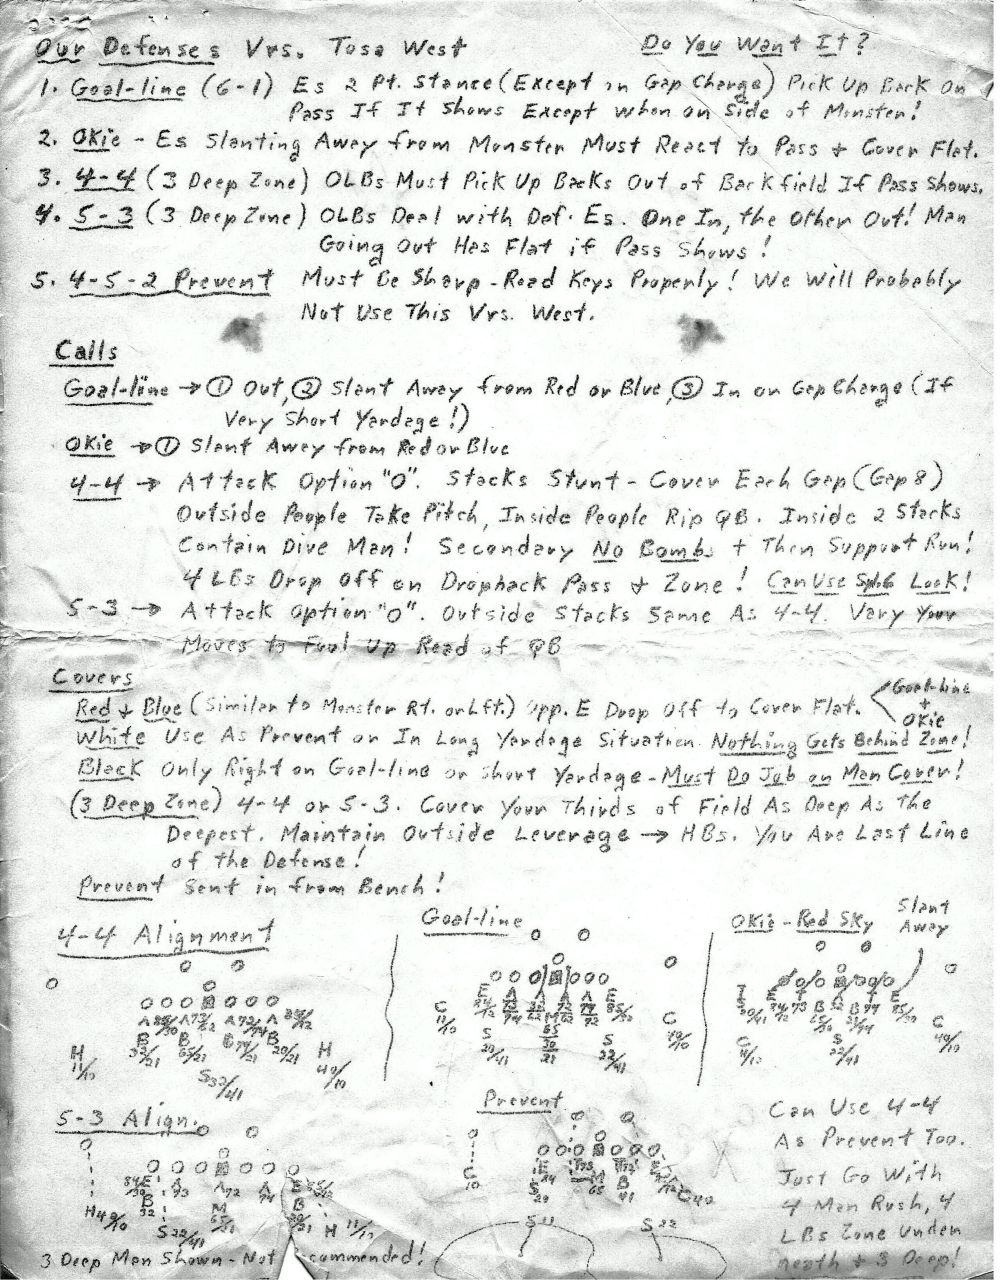 Our Defenses Vrs. Tosa West Do You Want It?
1. Goal-line (6-1) Es 2 Pt. Stance (Except in Gap Charge) Pick Up Back On
Pass If It Shows Except when on side of Monster!
2. Okie - Es Slanting Away from Monster Must React to Pass + Cover Flat.
3. 4-4 (3 Deep Zone) OLBs Must Pick Up Backs Out of Backfield If Pass Shows.
4. 5-3 (3 Deep Zone) OLBs Deal with Def. Es. One In, the Other Out! Man
Going Out Has Flat if Pass Shows!
5. 4-5-2 Prevent Must Be Sharp - Read Keys Properly! We Will Probably
Not Use This Vrs. West.
Calls
Goal-line → ① Out, ② Slant Away from Red or Blue, ③ In on Gap Charge (If
Very Short Yardage!)
Okie → ① Slant Away from Red or Blue
4-4 → Attack Option "O". Stacks Stunt - Cover Each Gap (Gap 8)
Outside People Take Pitch, Inside People Rip QB. Inside 2 Stacks
Contain Dive Man! Secondary No Bombs + Then Support Run!
4 LBs Drop Off on Dropback Pass + Zone! Can Use Split 6 Look!
5-3 → Attack Option "O". Outside Stacks Same As 4-4. Vary Your
Moves to Foul Up Read of QB
Covers
Red + Blue (Similar to Monster Rt. or Lft.) Opp. E Drop Off to Cover Flat. Goal-line
+
Okie
White Use As Prevent or In Long Yardage Situation. Nothing Gets Behind Zone!
Black Only Right on Goal-line or Short Yardage - Must Do Job on Man Cover!
(3 Deep Zone) 4-4 or 5-3. Cover Your Thirds of Field As Deep As The
Deepest. Maintain Outside Leverage → HBs. You Are Last Line
of the Defense!
Prevent Sent in from Bench!
4-4 Alignment
A A A A
B B B B
H 11/10
S 32/41
H 40/10
Goal-line
E A A A A E
C 11/10
M
S 20/41
S 22/41
C 40/10
Okie - Red Sky Slant
Away
C 11/10
S 22/41
C 40/10
5-3 Align.
E A A A E
B 32
M
B
H 40/10
S 22/41
H 11/10
3 Deep Man Shown - Not commended!
Prevent
C 10
S 20
M 65
B 41
C 40
S 11
S 22
Can Use 4-4
As Prevent Too.
Just Go With
4 Man Rush, 4
LBs Zone Under
neath + 3 Deep!